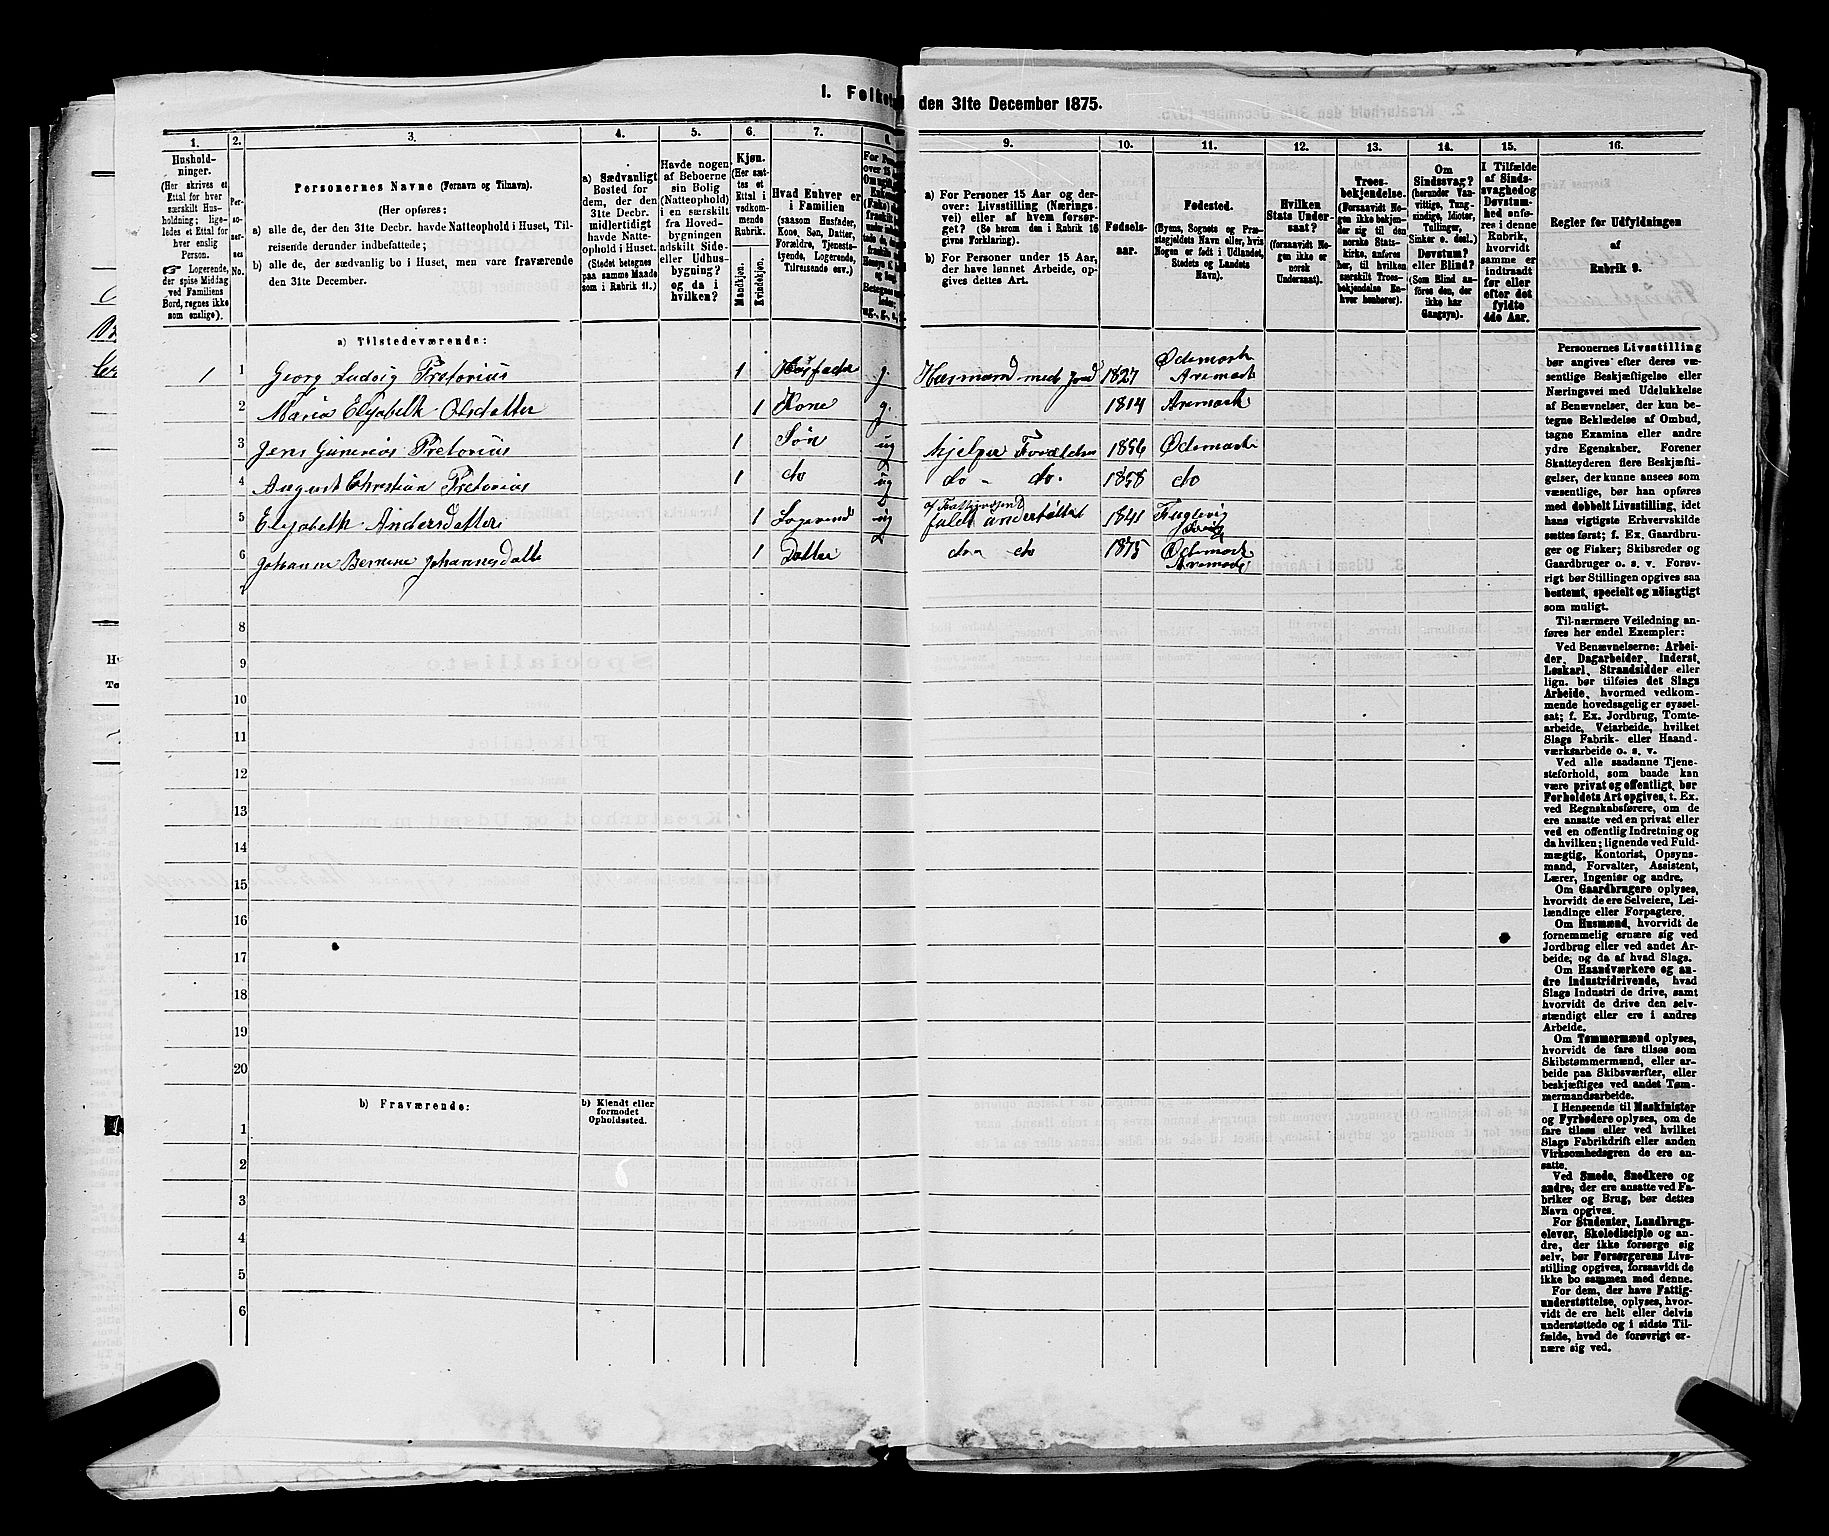 I. Folket den 31te December 1875.
1. 2. 3. 4. 5. 6. 7. 8. 9. 10. 11. 12. 13. 14. 15. 16.
Hushold-
ninger.
(Her skrives et
Ettal for hver
særskilt Hus-
holdning; lige-
ledes et Ettal for
hver enslig
Person.
☞ Logerende,
der spise Middag
ved Familiens
Bord, regnes ikke
som enslige).
Per-
so-
ner-
nes
No.
Personernes Navne (Fornavn og Tilnavn).
(Her opføres:
a) alle de, der den 31te Decbr. havde Natteophold i Huset, Til-
reisende derunder indbefattede;
b) alle de, der sædvanlig bo i Huset, men vare fraværende
den 31te December.
a) Sædvanligt
Bosted for
dem, der den
31te Decbr.
midlertidigt
havde Natte-
ophold i Huset.
(Stedet betegnes
paa samme Maade
som i Rubrik 11.)
Havde nogen
af Beboerne
sin Bolig
(Natteophold)
i en særskilt
fra Hoved-
bygningen
adskilt Side-
eller Udhus-
bygning?
og da i
hvilken?
Kjøn.
(Her sæt-
tes et
Ettal i
vedkom-
mende
Rubrik.
Mandkjøn.
Kvindekjøn.
Hvad Enhver er
i Familien
(saasom Husfader,
Kone, Søn, Datter,
Forældre, Tjeneste-
tyende, Logerende,
Tilreisende osv.)
a) For Personer 15 Aar og der-
over: Livsstilling (Nærings-
vei) eller af hvem forsør-
get? (Se herom den i Rubrik 16
givne Forklaring).
b) For Personer under 15 Aar,
der have lønnet Arbeide, op-
gives dettes Art.
Fødsels-
aar.
Fødested.
(Byens, Sognets og Præ-
stegjeldets Navn eller, hvis
Nogen er født i Udlandet,
Stedets og Landets
Navn).
Hvilken
Stats Under-
saat?
(forsaavidt No-
gen ikke er
norsk
Undersaat).
Troes-
bekjendelse.
(Forsaavidt No-
gen ikke bekjen-
der sig til den
norske Stats-
kirke, anføres
her, til hvilken
særskilt Troes-
bekjendelse En-
hver henhører).
Om
Sindssvag?
(herunder Van-
vittige, Tung-
sindige, Idioter,
Tullinger,
Sinker o. desl.)
Døvstum?
eller Blind?
(Som Blind an-
føres den, der
ikke har
Gangsyn).
I Tilfælde
af Sinds-
svaghed og
Døvstum-
hed anfø-
res i denne
Rubrik,
hvorvidt
samme er
indtraadt
før eller
efter det
fyldte
4de Aar.
Regler for Udfyldningen
af
Rubrik 9.
a) Tilstedeværende:
1 1 Georg Ludvig Pretorius 1 Husfader g. Husmand med Jord 1827 Ødemark Aremark
2 Maria Elisabeth Olsdatter 1 Kone g. 1814 Aremark
3 Jens Gunerius Pretorius 1 Søn ug hjelper Forældrene 1856 Ødemark
4 August Christian Pretorius 1 do ug do - do. 1858 do
5 Elisabeth Andersdatter 1 Logerend ug af Fattigvæsenet fuldt understøttet 1841
6 Johanne Bernene Johannesdatter 1 Datter do - do 1875 Ødemark Aremark
7
8
9
10
11
12
13
14
15
16
17
18
19
20
b) Fraværende:
b) Kjendt eller
formodet
Opholdssted.
1
2
3
4
5
6
Personernes Livsstilling
bør angives efter deres væ-
sentlige Beskjæftigelse eller
Næringsvei med Udelukkelse
af Benævnelser, der kun be-
tegne Beklædelse af Ombud,
tagne Examina eller andre
ydre Egenskaber. Forener
Skatteyderen flere Beskjæfti-
gelser, der kunne ansees som
væsentlige, bør han opføres
med dobbelt Livsstilling, idet
hans vigtigste Erhvervskilde
sættes først; f. Ex. Gaardbru-
ger og Fisker; Skibsreder og
Gaardbruger o. s. v. Forøv-
rigt bør Stillingen opgives saa
bestemt, specielt og nøiagtigt
som muligt.
Til nærmere Veiledning an-
føres her endel Exempler:
Ved Benævnelserne: Arbei-
der, Dagarbeider, Inderst,
Løskarl, Strandsidder eller
lign. bør tilføies det Slags
Arbeide, hvormed vedkom-
mende hovedsagelig er syssel-
sat; f. Ex. Jordbrug, Tomte-
arbeide, Veiarbeide, hvilket
Slags Fabrik- eller Haand-
værksarbeide o. s. v.
Ved alle saadanne Tjene-
steforhold, som baade kan
være privat og offentligt, bør
Forholdets Art opgives, t. Ex.
ved Regnskabsførere, om de
ere ansatte ved en privat eller
ved en offentlig Indretning og
da hvilken; lignende ved Fuld-
mægtig, Kontorist, Opsyns-
mand, Forvalter, Assistent,
Lærer, Ingeniør og andre.
Om Gaardbrugere oplyses,
hvorvidt de ere Selveiere, Lei-
lændinge eller Forpagtere.
Om Husmænd, hvorvidt de
fornemmelig ernære sig ved
Jordbrug eller ved andet Ar-
beide; og da af hvad Slags.
Om Haandværkere og an-
dre Industridrivende, hvad
Slags Industri de drive, samt
hvorvidt de drive den selv-
stændigt eller ere i andres
Arbeide.
Om Tømmermænd oplyses,
hvorvidt de fare tilsøs som
Skibstømmermænd, eller ar-
beide paa Skibsværfter, eller
beskjæftiges ved andet Tøm-
mermandsarbeide.
I Henseende til Maskinister
og Fyrbødere oplyses, om de
fare tilsøs eller ved hvilket
Slags Fabrikdrift eller anden
Virksomhedsgren de ere an-
satte.
Ved Smede, Snedkere og
andre, der ere ansatte ved Fa-
briker og Brug, bør dettes
Navn opgives.
For Studenter, Landbrugs-
elever, Skoledisciple og an-
dre, der ikke forsørge sig
selv, bør Forsørgerens Livs-
stilling opgives, forsaavidt de
ikke bo sammen med denne.
For dem, der have Fattig-
understøttelse, oplyses, hvor-
vidt de ere helt eller delvis
understøttede og i sidste Til-
fælde, hvad de forøvrigt er-
nære sig ved.